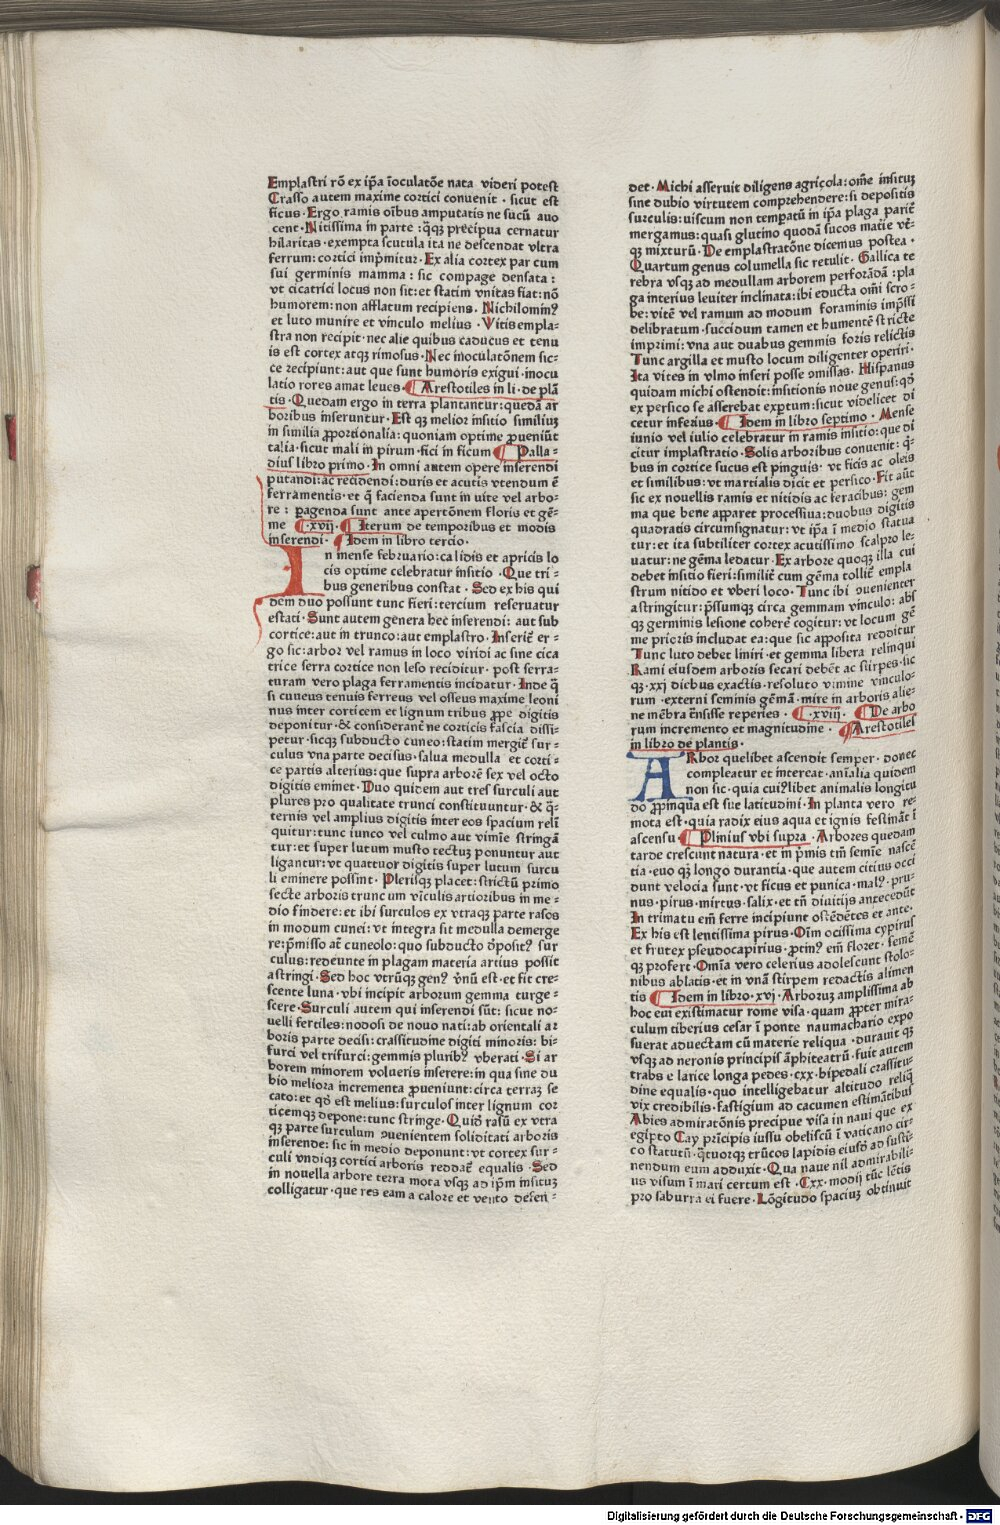 Emplastri rõ ex ip̃a ĩoculatõe nata videri potest
Crasso autem maxime cortici conuenit · sicut est
ficus · Ergo ramis oĩbus amputatis ne sucũ auo
cent · Nitissima in parte : q̃qꝫ precipua cernatur
hilaritas · exempta scutula ita ne descendat vltra
ferrum: cortici imp̃mitur · Ex alia cortex par cum
sui germinis mamma : sic compage densata :
vt cicatrici locus non sit: et statim vnitas fiat: nõ
humorem: non afflatum recipiens. Nichilominꝰ
et luto munire et vinculo melius · Vitis empla⸗
stra non recipit · nec alie quibus caducus et tenu
is est cortex atqꝫ rimosus · Nec inoculatõnem sic⸗
ce recipiunt: aut que sunt humoris exigui · inocu
latio rores amat leues · ¶ Arestotiles in li · de plã
tis · Quedam ergo in terra plantantur: quedã ar
boribus inseruntur · Est qꝫ melior insitio similiuꝫ
in similia ꝓportionalia: quoniam optime ꝓueniũt
talia · sicut mali in pirum · fici in ficum ¶ Palla⸗
dius libro primo · In omni autem opere inserendi
putandi: ac recidendi: duris et acutis vtendum ẽ
ferramentis · et q̃ facienda sunt in uite vel arbo⸗
re : pagenda sunt ante apertõnem floris et gẽ⸗
me ¶ ·xvij· ¶ Iterum de temporibus et modis
inserendi · ¶ Idem in libro tercio ·
In mense februario: calidis et apricis lo
cis optime celebratur insitio · Que tri⸗
bus generibus constat · Sed ex his qui
dem duo possunt tunc fieri: tercium reseruatur
estati · Sunt autem genera hec inserendi: aut sub
cortice: aut in trunco: aut emplastro · Inserit̃ er⸗
go sic: arbor vel ramus in loco viridi ac sine cica
trice serra cortice non leso reciditur · post serra⸗
turam vero plaga ferramentis incidatur · Inde q̃
si cuneus tenuis ferreus vel osseus maxime leoni
nus inter corticem et lignum tribus ꝓpe digitis
deponitur · & considerant̃ ne corticis fascia dissi⸗
petur · sicqꝫ subducto cuneo: statim mergit̃ sur⸗
culus vna parte decisus · salua medulla et corti⸗
ce partis alterius: que supra arborẽ sex vel octo
digitis eminet · Duo quidem aut tres surculi aut
plures pro qualitate trunci constituuntur · & q̃⸗
ternis vel amplius digitis inter eos spacium reli
quitur: tunc iunco vel culmo aut vimĩe stringã
tur: et super lutum musto tectuꝫ ponuntur aut
ligantur: vt quattuor digitis super lutum surcu
li eminere possint · Plerisqꝫ placet: strictũ primo
secte arboris truncum vĩculis artioribus in me⸗
dio findere: et ibi surculos ex vtraqꝫ parte rasos
in modum cunei: vt integra sit medulla demerge
re: p̃misso at̃ cuneolo: quo subducto ꝯpositꝰ sur
culus: redeunte in plagam materia artius possit
astringi · Sed hoc vtrũqꝫ genꝰ ṽnũ est · et fit cre⸗
scente luna · vbi incipit arborum gemma turge⸗
scere · Surculi autem qui inserendi sũt: sicut no⸗
uelli fertiles: nodosi de nouo nati: ab orientali ar
boris parte decisi: crassitudine digiti minoris: bi⸗
furci vel trifurci: gemmis pluribꝰ vberati · Si ar
borem minorem volueris inserere: in qua sine du
bio meliora incrementa ꝓueniunt: circa terraꝫ se
cato: et qđ est melius: surculos inter lignum cor
ticemqꝫ depone: tunc stringe · Quiđ rasũ ex vtra
qꝫ parte surculum ꝯuenientem soliditati arboris
inserende: sic in medio deponunt: vt cortex sur⸗
culi vndiqꝫ cortici arboris reddat̃ equalis · Sed
in nouella arbore terra mota vsqꝫ ad ip̃m insituꝫ
colligatur · que res eam a calore et vento defen⸗
det · Michi asseruit diligens agricola: om̃e insituꝫ
sine dubio virtutem comprehendere: si depositis
surculis: uiscum non tempatũ in ip̃a plaga parit̃
mergamus: quasi glutino quodã sucos matĩe vt̃⸗
qꝫ mixturũ · De emplastratõne dicemus postea ·
Quartum genus columella sic retulit · Gallica te
rebra vsqꝫ ad medullam arborem perforãdã : pla
ga interius leuiter inclinata: ibi educta om̃i scro⸗
be: vitẽ vel ramum ad modum foraminis imp̃ssi
delibratum · succidum tamen et humentẽ stricte
imprimi: vna aut duabus gemmis foris relictis
Tunc argilla et musto locum diligenter operiri ·
Ita vites in vlmo inseri posse ꝯmissas · Hispanus
quidam michi ostendit: insitionis noue genus: qđ
ex persico se asserebat exp̃tum: sicut videlicet di
cetur inferius · ¶ Idem in libro septimo · Mense
iunio vel iulio celebratur in ramis insitio: que di
citur implastratio · Solis arboribus conuenit: q̃⸗
bus in cortice sucus est pinguis · vt ficis ac oleis
et similibus: vt martialis dicit et persico · Fit aũt
sic ex nouellis ramis et nitidis ac feracibus: gem
ma que bene apparet processiua: duobus digitis
quadratis circumsignatur: vt ip̃a ĩ medio statua
tur: et ita subtiliter cortex acutissimo scalpro le⸗
uatur: ne gẽma ledatur · Ex arbore quoqꝫ illa cui
debet insitio fieri: similit̃ cum gẽma tollit̃ empla
strum nitido et vberi loco · Tunc ibi ꝯuenienter
astringitur: p̃ssumqꝫ circa gemmam vinculo: abs
qꝫ germinis lesione coherẽ cogitur: vt locum gẽ
me prioris includat ea: que sic apposita redditur
Tunc luto debet liniri · et gemma libera relinqui
Rami eiusdem arboris secari debẽt ac stirpes · sic
qꝫ · xxj diebus exactis · resoluto vimine vinculo⸗
rum · externi seminis gẽmã · mire in arboris alie⸗
ne mẽbra t̃nsisse reperies · ¶ ·xviij· ¶ De arbo
rum incremento et magnitudine · ¶ Arestotiles
in libro de plantis ·
ARbor quelibet ascendit semper · donec
compleatur et intereat · anĩalia quidem
non sic · quia cuiꝰlibet animalis longitu
do ꝓpinqua est sue latitudini · In planta vero re⸗
mota est · quia radix eius aqua et ignis festinãt ĩ
ascensu · ¶ Plinius vbi supra · Arbores quedam
tarde crescunt natura · et in p̃mis tm̃ semĩe nascẽ
tia · euo qꝫ longo durantia · que autem citius occi
dunt velocia sunt · vt ficus et punica · malꝰ · pru⸗
nus · pirus · mirtus · salix · et tñ diuitijs antecedũt
In trimatu em̃ ferre incipiunt ostẽdẽtes et ante ·
Ex his est lentissima pirus · Oĩm ocissima cypirus
et frutex pseudocapirius · ꝓtinꝰ em̃ floret · semẽ
qꝫ profert · Om̃ia vero celerius adolescunt stolo⸗
nibus ablatis · et in vnã stirpem redactis alimen
tis ¶ Idem in libro · xvj · Arboruꝫ amplissima ab
hoc eui existimatur rome visa · quam ꝓpter mira⸗
culum tiberius cesar ĩ ponte naumachario expo
suerat aduectam cũ materie reliqua · durauit qꝫ
vsqꝫ ad neronis principis ãphiteatrũ · fuit autem
trabs e larice longa pedes · cxx · bipedali crassitu⸗
dine equalis · quo intelligebatur altitudo reliq̃
vix credibilis · fastigium ad cacumen estimãtibus
Abies admiratõnis precipue visa in naui que ex
egipto Cay prĩcipis iussu obeliscũ ĩ vaticano cir⸗
co statutũ · q̃tuorqꝫ trũcos lapidis eiusđ ad susti⸗
nendum eum adduxit · Qua naue nil admirabili⸗
us visum ĩ mari certum est · Cxx · modij tũc lẽtis
pro saburra ei fuere · Lõgitudo spaciuꝫ obtinuit
Digitalisierung gefördert durch die Deutsche Forschungsgemeinschaft - DFG